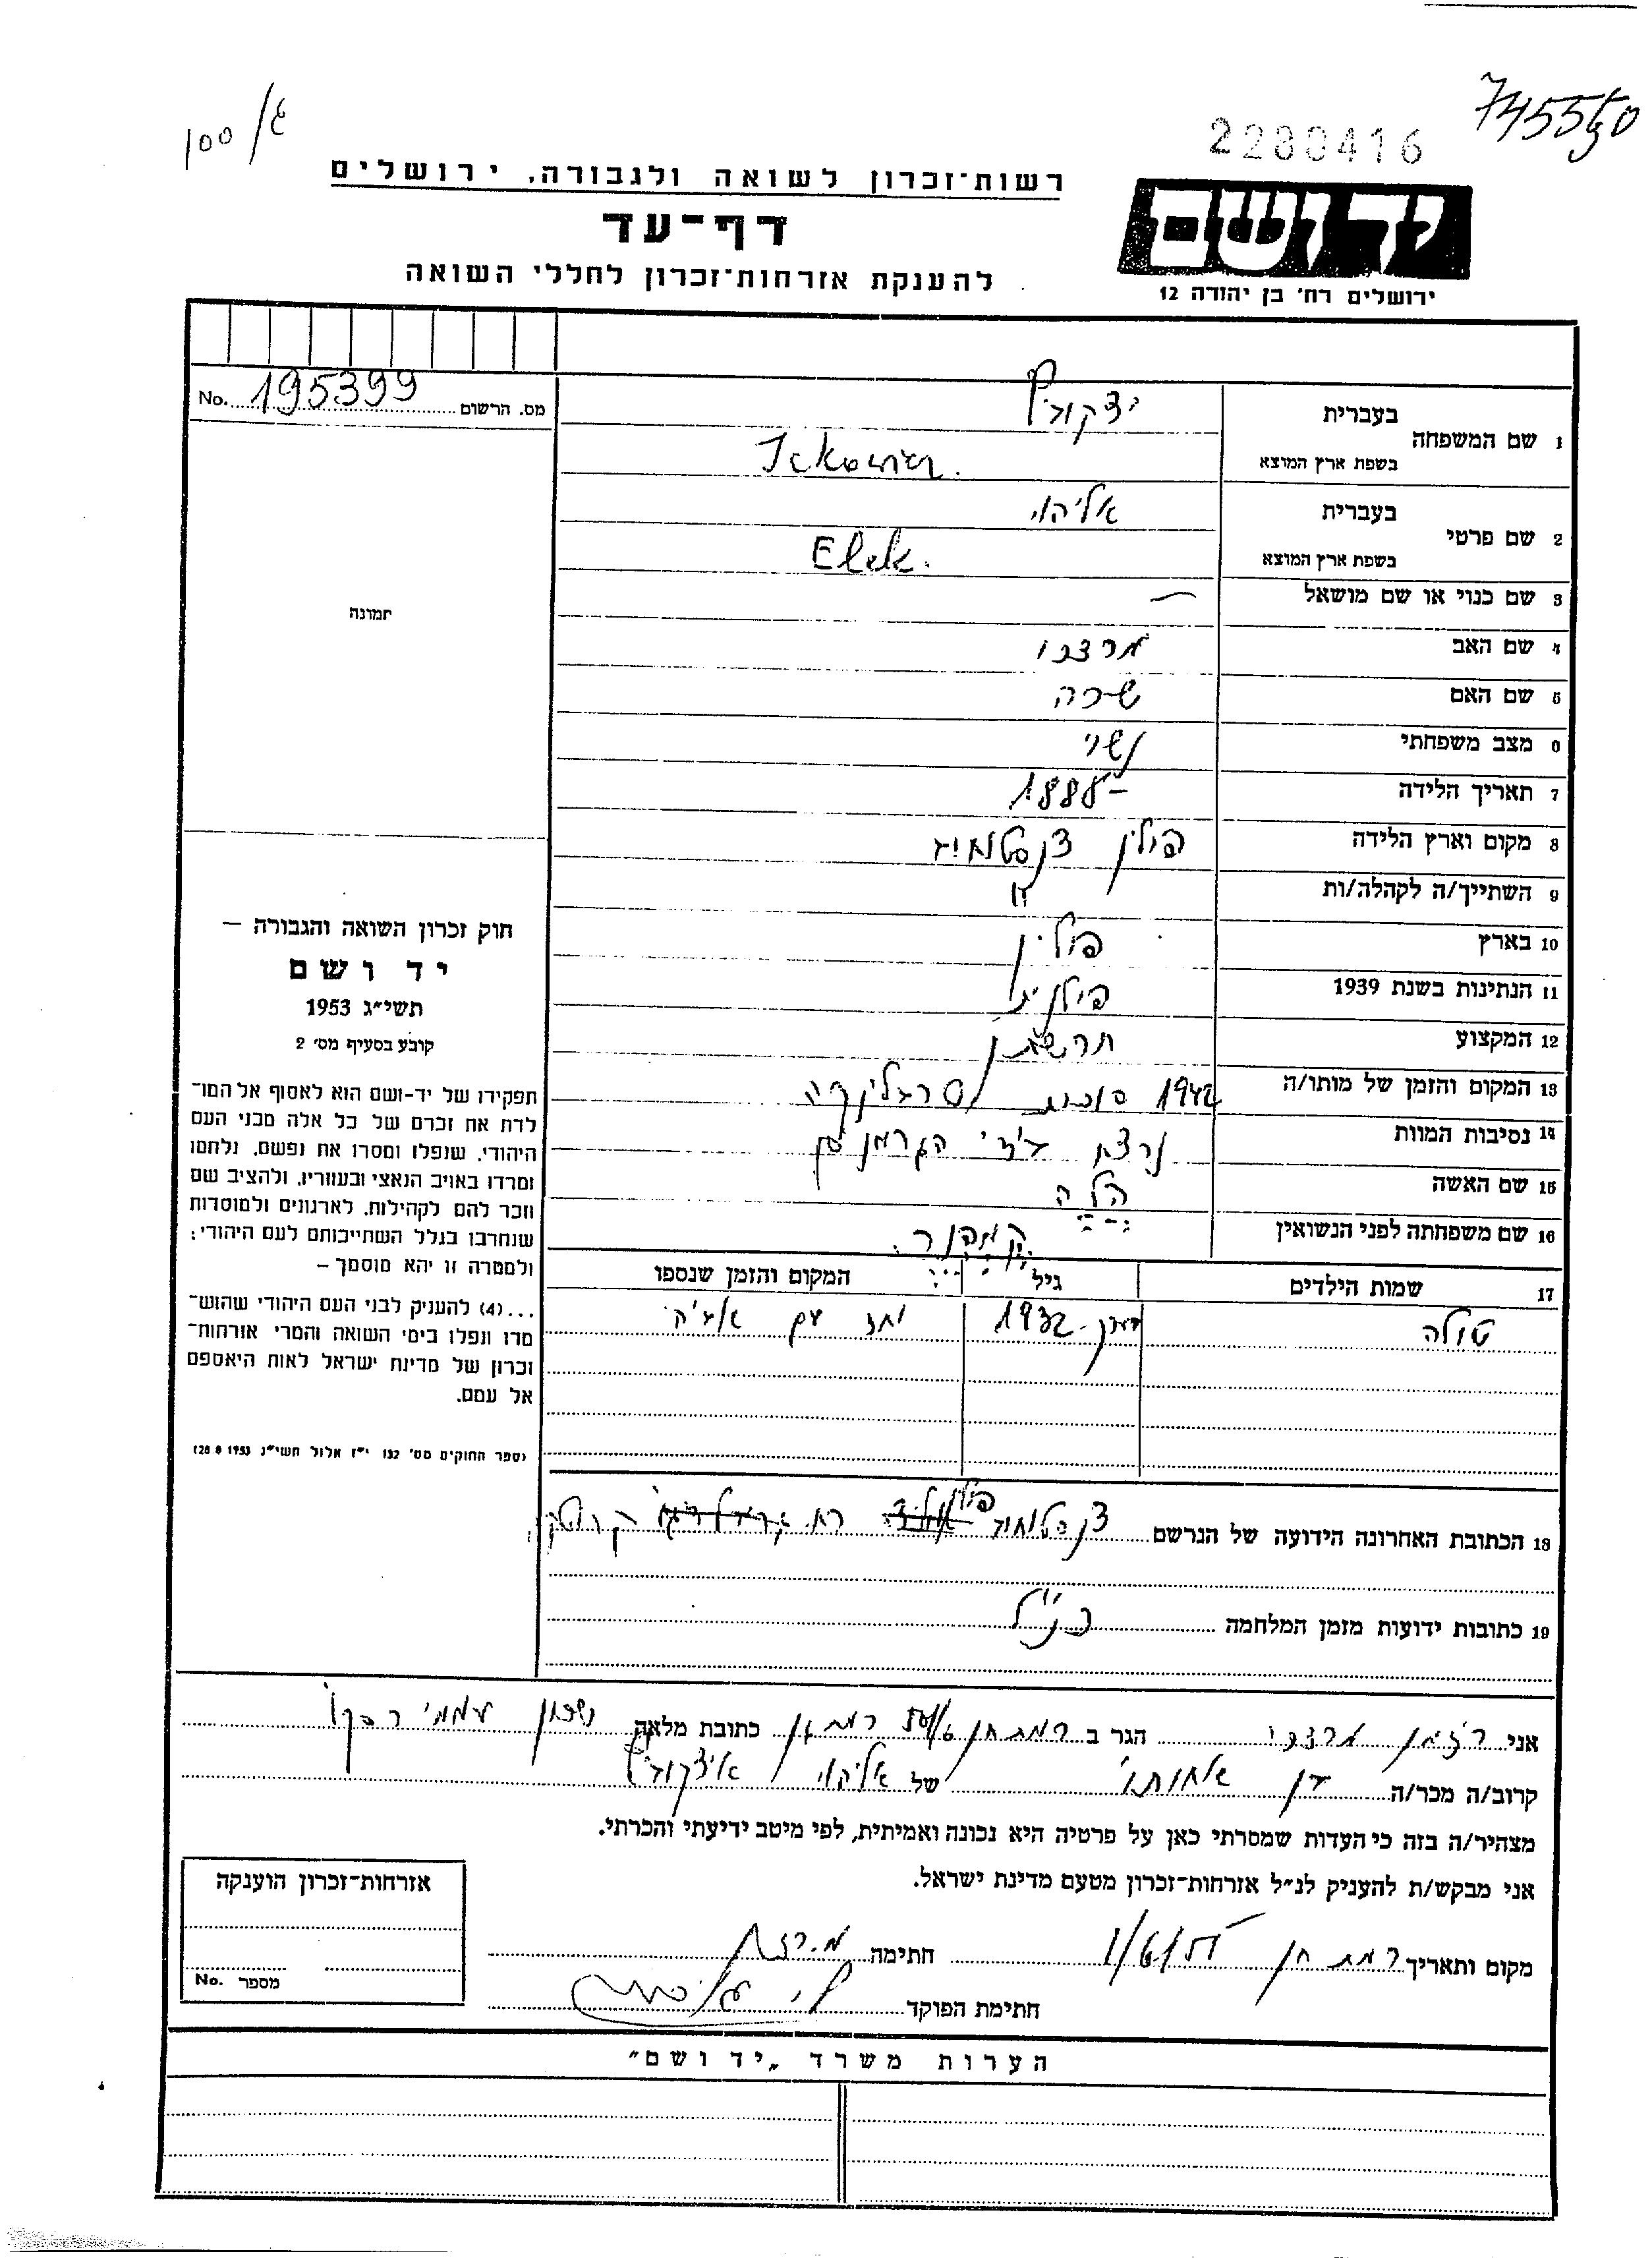 100/ג
745550
2280416
רשות־זכרון לשואה ולגבורה, ירושלים
יד ושם
דף־עד
להענקת אזרחות־זכרון לחללי השואה
ירושלים רח' בן יהודה 12
מס. הרשום 195399 No.
1 שם המשפחה
בעברית
בשפת ארץ המוצא
2 שם פרטי
בעברית אליהו
בשפת ארץ המוצא
3 שם כנוי או שם מושאל —
4 שם האב מרדכי
5 שם האם שרה
6 מצב משפחתי נשוי
7 תאריך הלידה 1888-
8 מקום וארץ הלידה פולין
9 השתייך/ה לקהלה/ות "
10 בארץ פולין
11 הנתינות בשנת 1939 פולנית
12 המקצוע
13 המקום והזמן של מותו/ה 1942
14 נסיבות המוות
15 שם האשה הלה
16 שם משפחתה לפני הנשואין
17 שמות הילדים גיל המקום והזמן שנספו
1932 יחד עם אביה
18 הכתובת האחרונה הידועה של הנרשם
19 כתובות ידועות מזמן המלחמה כנ"ל
תמונה
חוק זכרון השואה והגבורה —
יד ושם
תשי״ג 1953
קובע בסעיף מס' 2
תפקידו של יד-ושם הוא לאסוף אל המו־
לדת את זכרם של כל אלה מבני העם
היהודי, שנפלו ומסרו את נפשם, נלחמו
ומרדו באויב הנאצי ובעוזריו, ולהציב שם
וזכר להם לקהילות, לארגונים ולמוסדות
שנחרבו בגלל השתייכותם לעם היהודי;
ולמטרה זו יהא מוסמך –
...(4) להעניק לבני העם היהודי שהוש־
מדו ונפלו בימי השואה והמרי אזרחות־
זכרון של מדינת ישראל לאות היאספם
אל עמם.
(ספר החוקים מס' 132 י״ז אלול תשי״ג 28.8.1953)
אני מרדכי הגר ב רמת חן כתובת מלאה שכון
קרוב/ה מכר/ה של אליהו איצקוביץ
מצהיר/ה בזה כי העדות שמסרתי כאן על פרטיה היא נכונה ואמיתית, לפי מיטב ידיעתי והכרתי.
אני מבקש/ת להעניק לנ״ל אזרחות־זכרון מטעם מדינת ישראל.
מקום ותאריך רמת חן חתימה
חתימת הפוקד
אזרחות־זכרון הוענקה
מספר No.
הערות משרד „יד ושם״